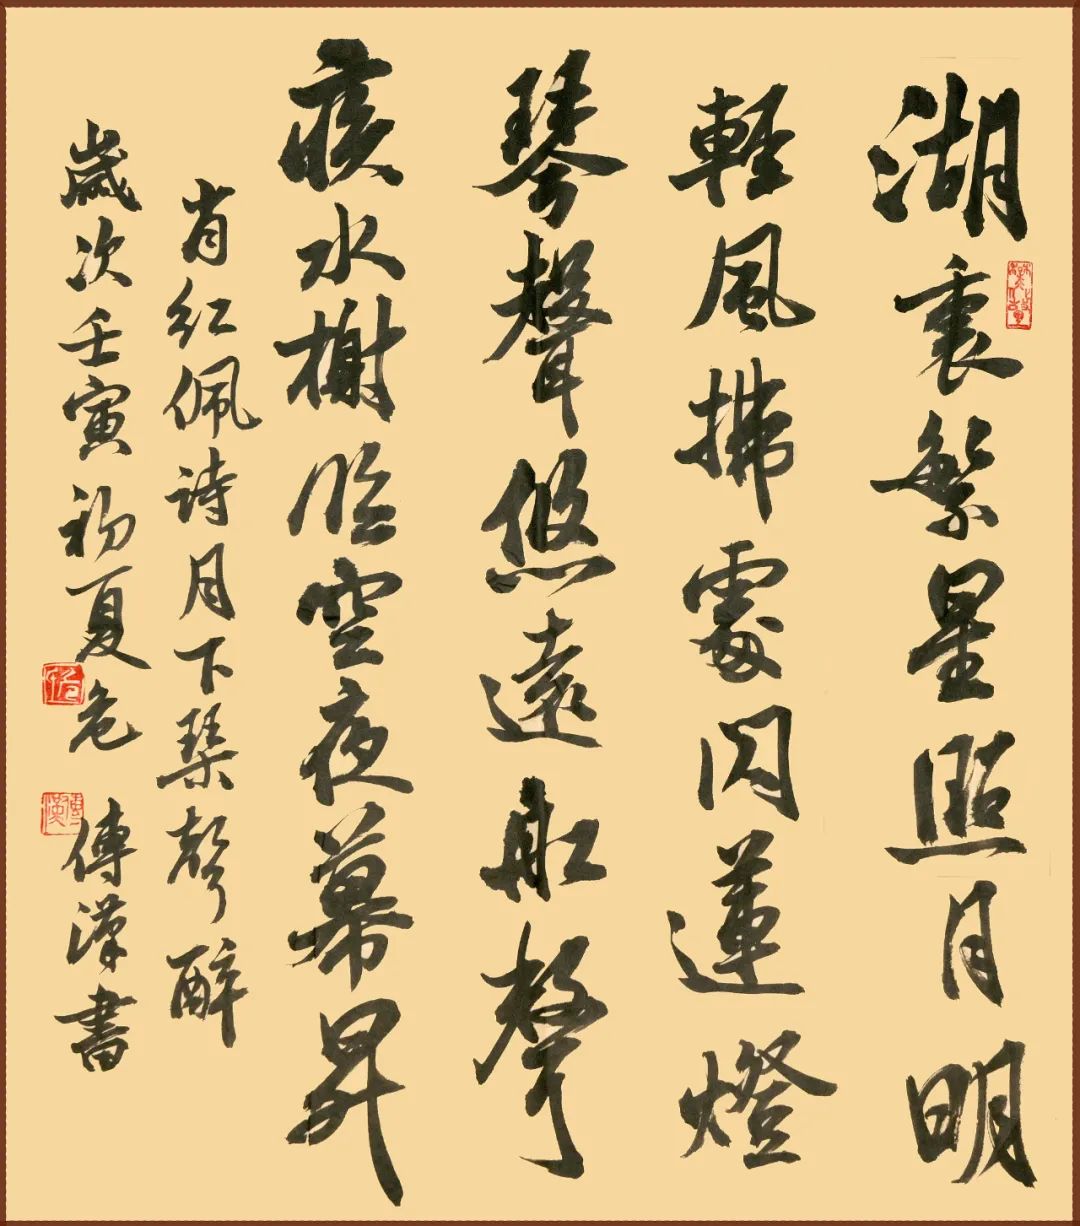 湖裏繁星照月明
輕風拂處閃蓮燈
琴聲悠遠舡聲
水榭临空夜幕昇
肖红佩诗月下琴声醉
歲次壬寅初夏危 傳漢書